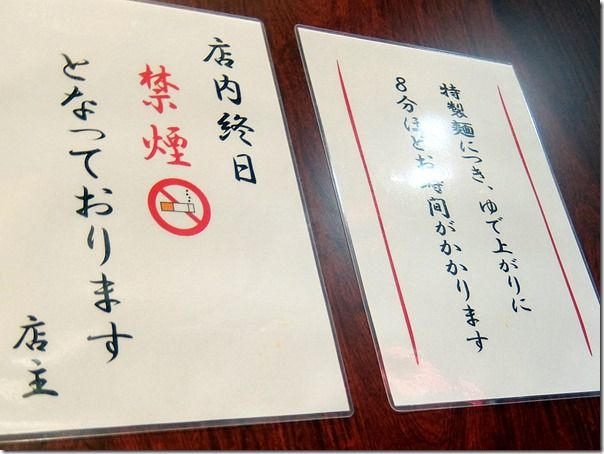 店内終日
禁煙
となっております
店主
特製麺につき、ゆで上がりに
8分ほどお時間がかかります